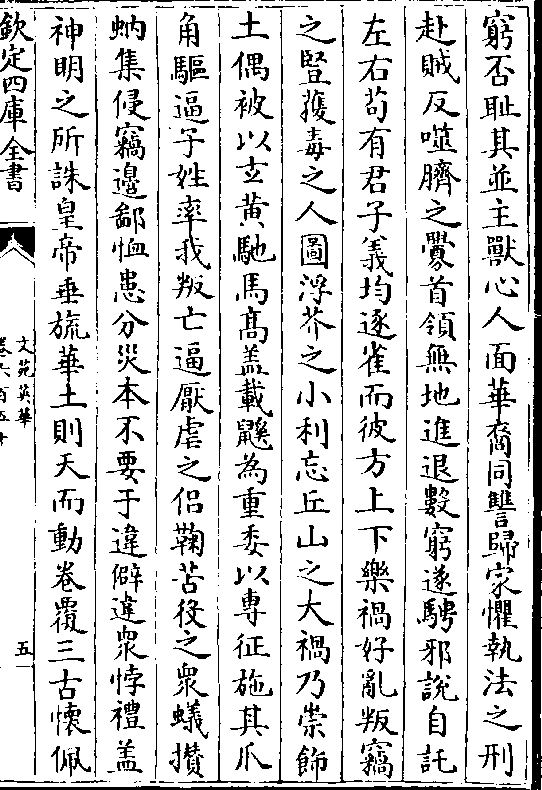 窮否耻其並主獸心人面華裔同讐歸家懼執法之刑
赴賊反噬臍之釁首領無地進退數窮遂騁邪說自託
左右苟有君子義均逐雀而彼方上下樂禍好亂叛竊
之豎蒦毒之人圖浮芥之小利忘丘山之大禍乃崇飾
土偶被以玄黄馳馬高盖載鼷為重委以専征施其爪
角驅逼子姓率我叛亡逼厭虐之侣鞠苦役之衆蟻攢
蚋集侵竊邉鄙恤患分災本不要于違僻違衆悖禮盖
神明之所誅皇帝垂旒華土則天而動卷覆三古懷佩
欽定四庫全書
文苑英華
卷六百五十
五